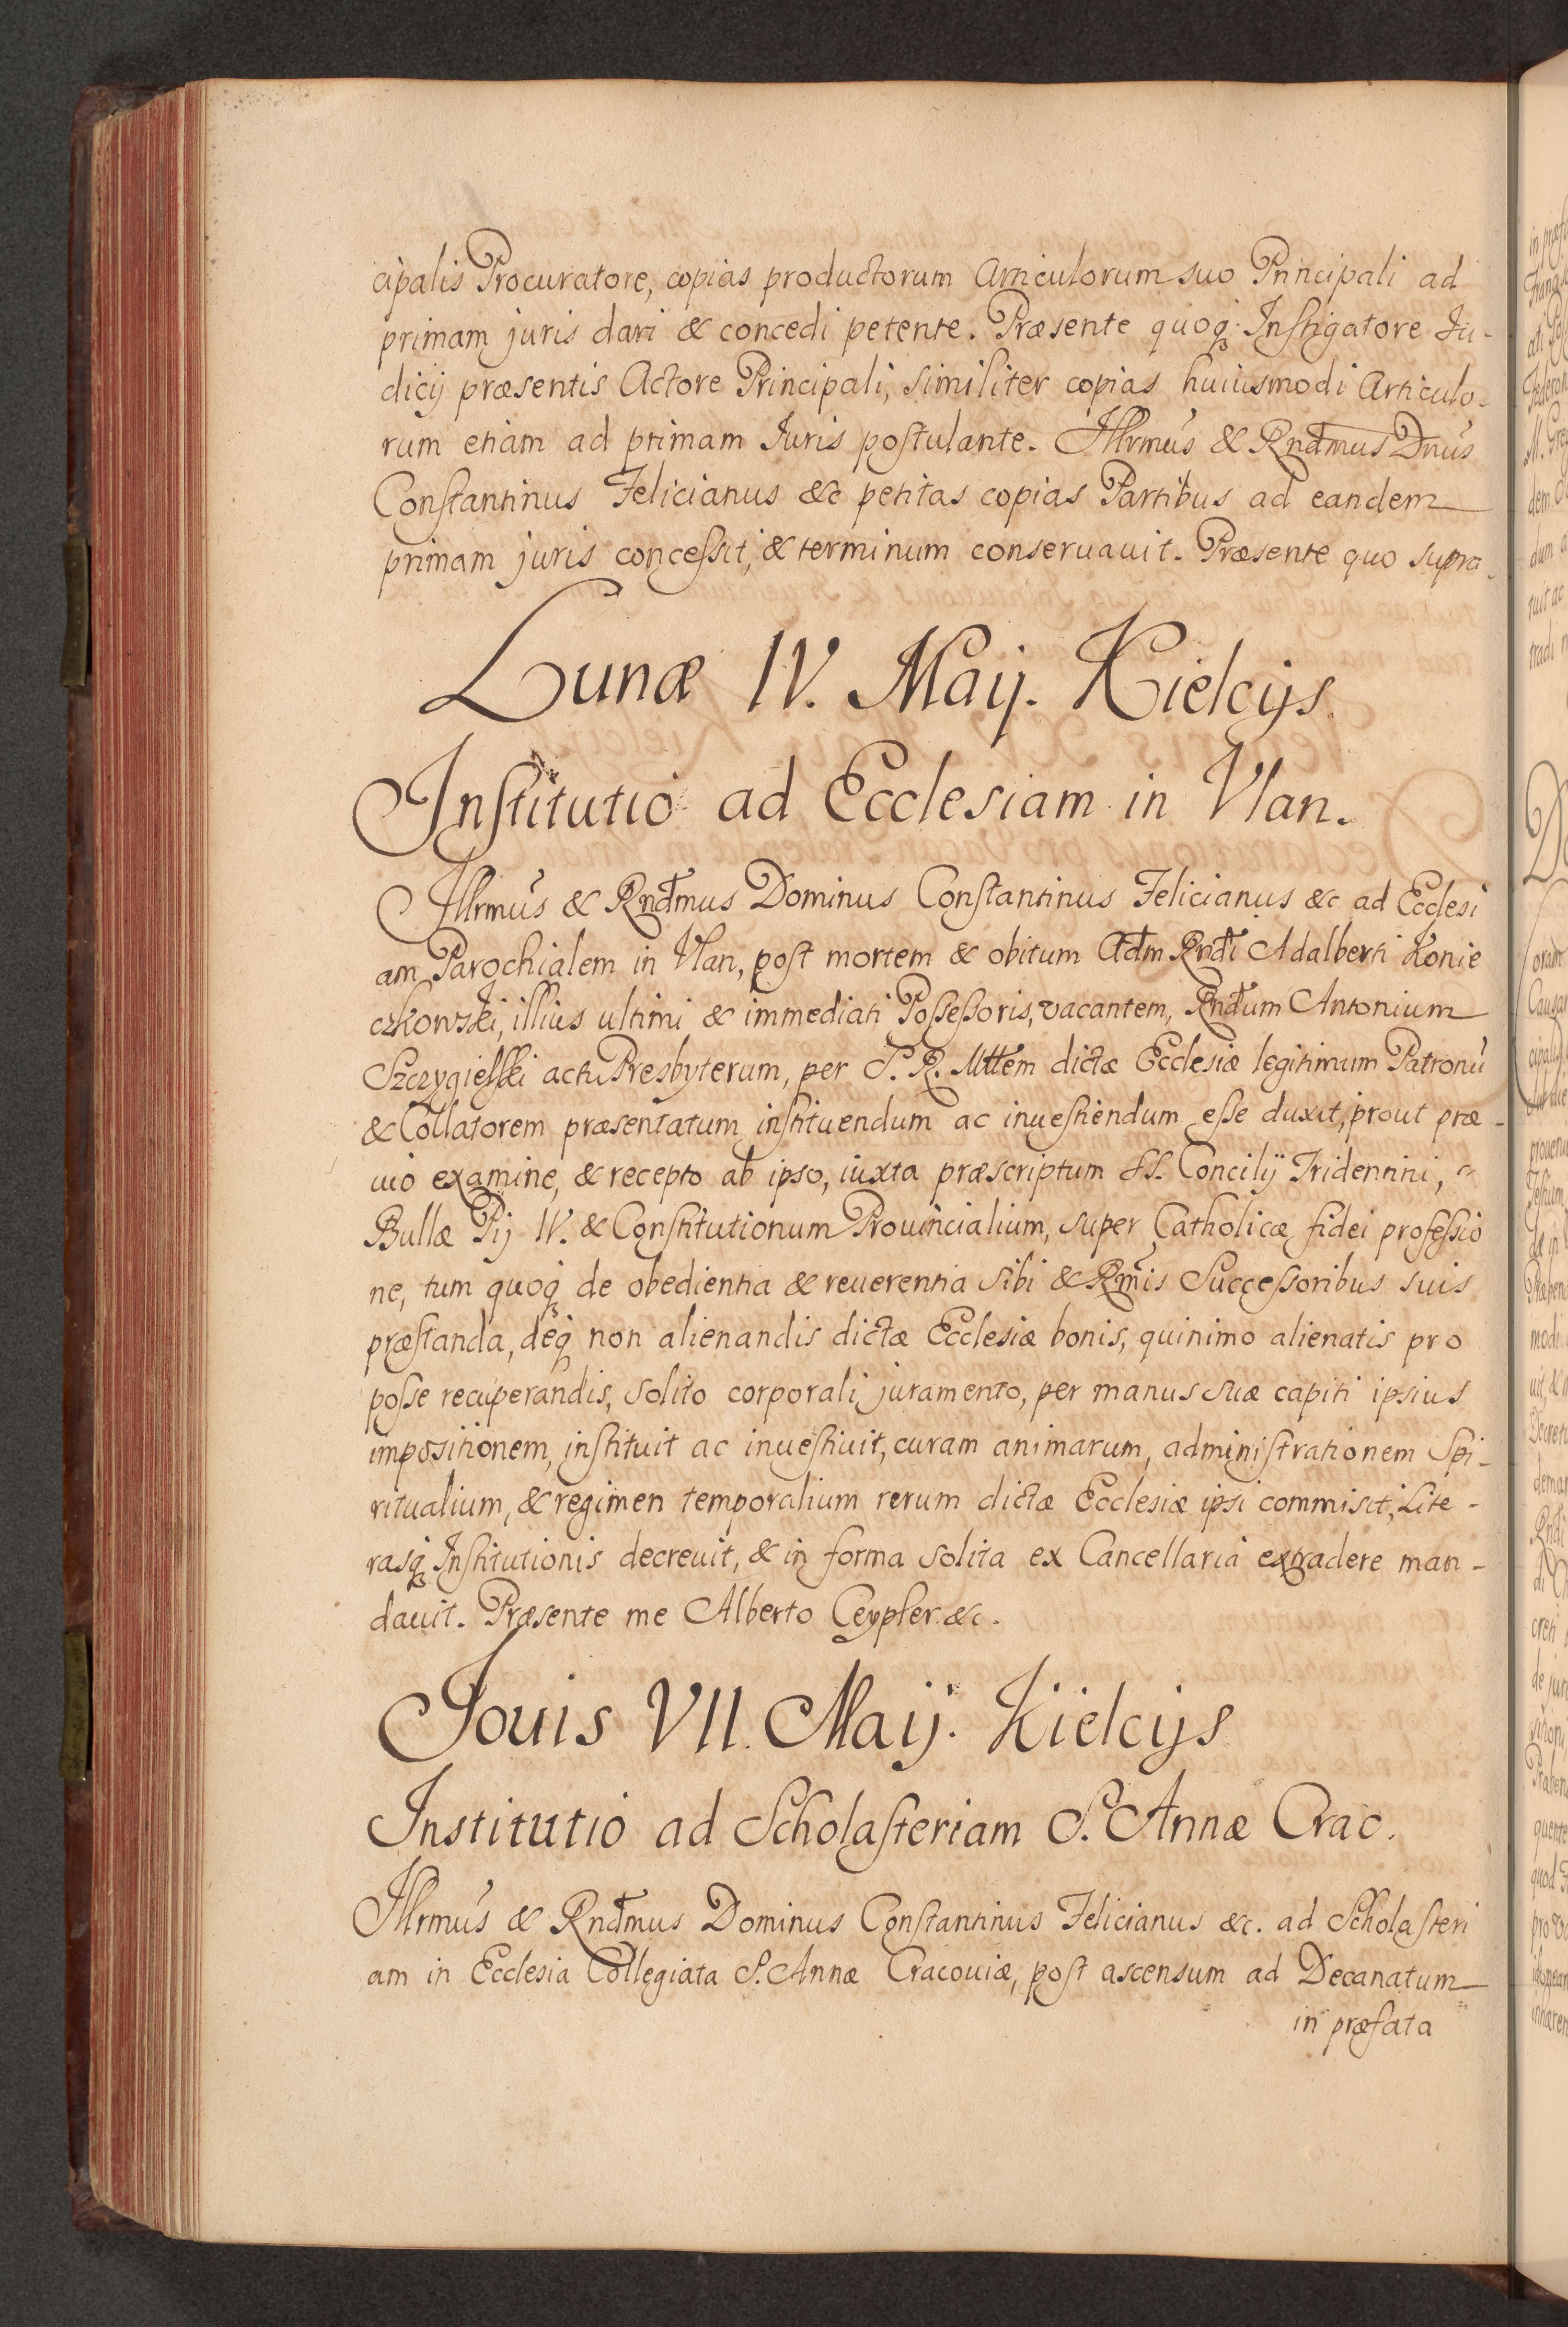 cipalis Procuratore, copias productorum Articulorum suo Principali ad
primam juris dari & concedi petente. Præsente quoq; Instigatore Ju-
dicij præsentis Actore Principali, similiter copias huiusmodi Articulo-
rum etiam ad primam Juris postulante. Illrmus & Rndmus Dnus
Constantinus Felicianus &c petitas copias Partibus ad eandem
primam juris concessit, & terminum conseruauit. Præsente quo supra.
Lunæ IV. Maij. Kielcijs.
Institutio ad Ecclesiam in Vlan.
Illrmus & Rndmus Dominus Constantinus Felicianus &c ad Ecclesi
am Parochialem in Vlan, post mortem & obitum Adm Rndi Adalberti Konie
czkowski, illius ultimi & immediati Possessoris, vacantem, Rndum Antonium
Szczygielski actu Presbyterum, per S. R. Mttem dictæ Ecclesiæ legitimum Patronū
& Collatorem præsentatum instituendum ac inuestiendum esse duxit, prout præ-
uio examine, & recepto ab ipso, iuxta præscriptum SS. Concilij Tridentini,
Bullæ Pij IV. & Constitutionum Prouincialium, super Catholicæ fidei professio
ne, tum quoq; de obedientia & reuerentia sibi & Rmis Successoribus suis
præstanda, deq; non alienandis dictæ Ecclesiæ bonis, quinimo alienatis pro
posse recuperandis, solito corporali juramento, per manus suæ capiti ipsius
impositionem, instituit ac inuestiuit, curam animarum, administrationem Spi-
ritualium, & regimen temporalium rerum dictæ Ecclesiæ ipsi commisit, Lite-
rasq; Institutionis decreuit, & in forma solita ex Cancellaria extradere man-
dauit. Præsente me Alberto Ceypler. &c.
Jouis VII. Maij. Kielcijs
Institutio ad Scholasteriam S. Annæ Crac.
Illrmus & Rndmus Dominus Constantinus Felicianus &c. ad Scholasteri
am in Ecclesia Collegiata S. Annæ Cracouiæ, post ascensum ad Decanatum
in præfata